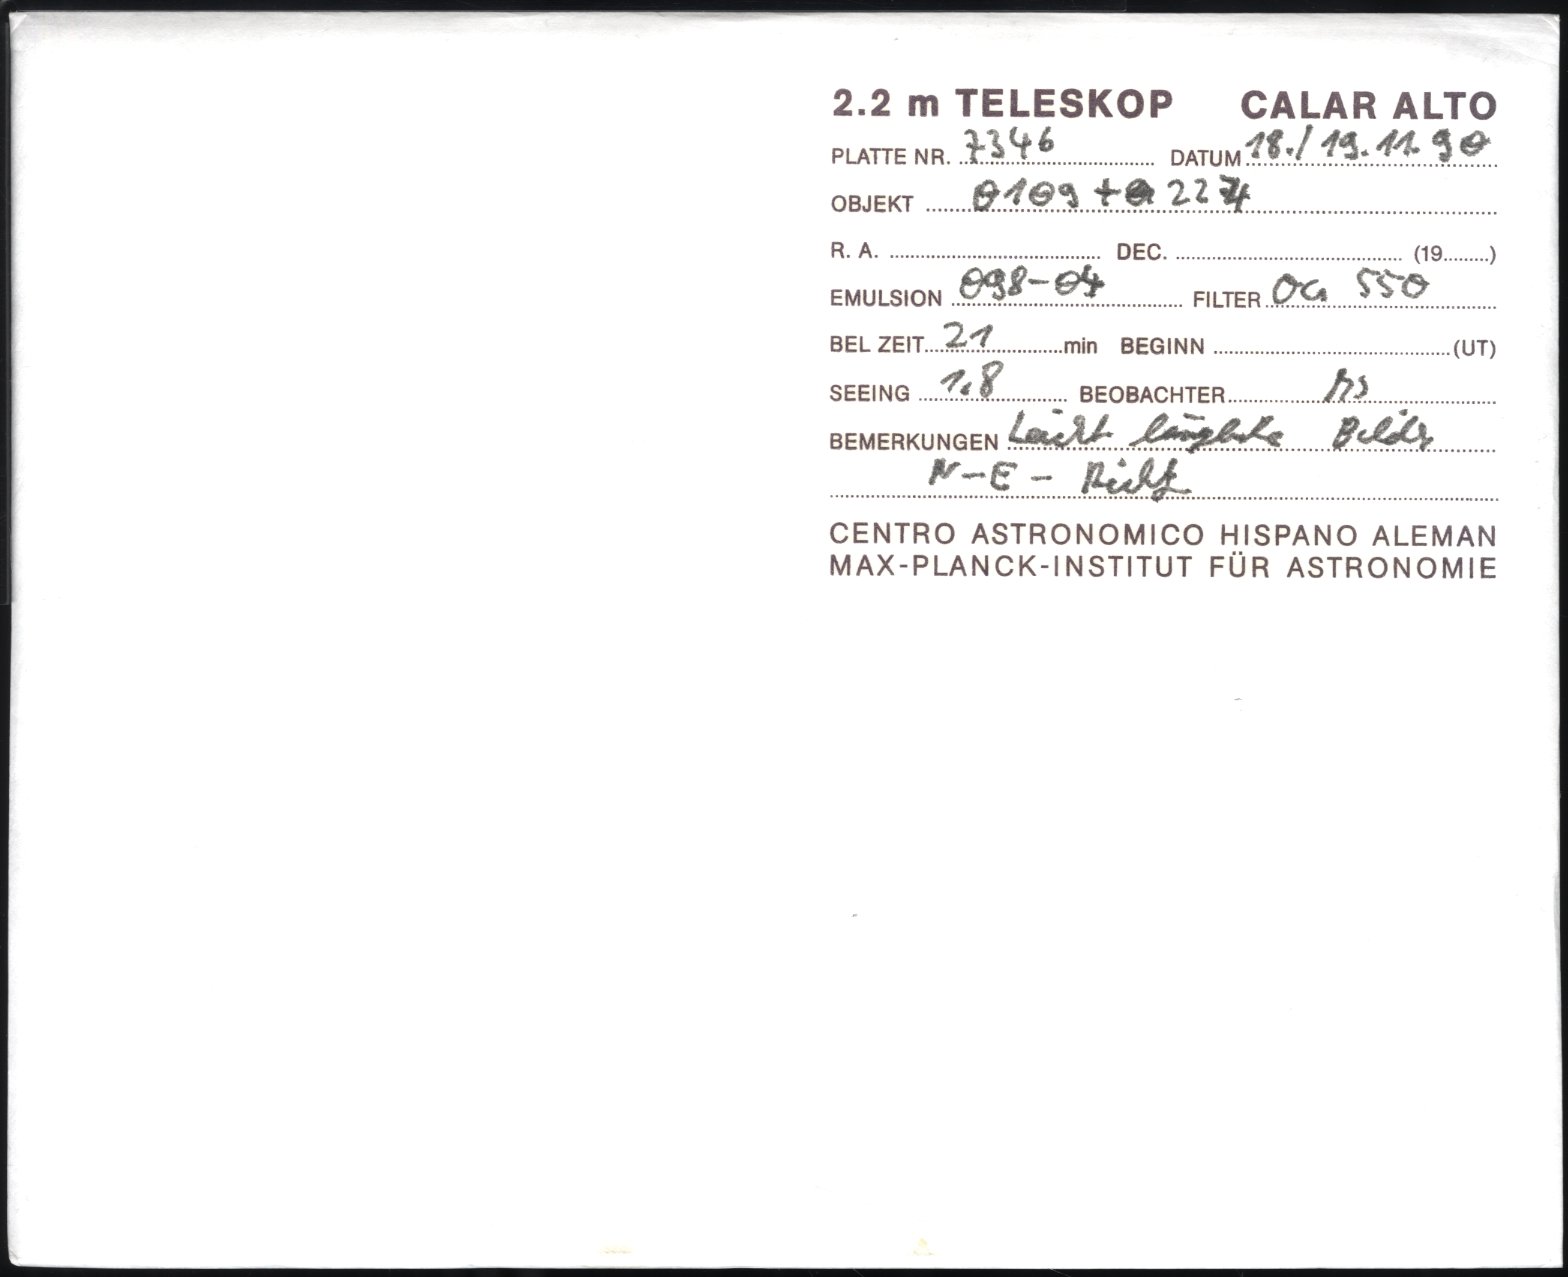 2.2 m TELESKOP CALAR ALTO
PLATTE NR. 7346 DATUM 18./19.11.90
OBJEKT 0109+0 224
R. A. DEC. (19........)
EMULSION 098-04 FILTER OG 550
BEL ZEIT 21 min BEGINN (UT)
SEEING 1.8 BEOBACHTER MS
BEMERKUNGEN Leicht längliche Bilder
N-E- Richt.
CENTRO ASTRONOMICO HISPANO ALEMAN
MAX-PLANCK-INSTITUT FÜR ASTRONOMIE